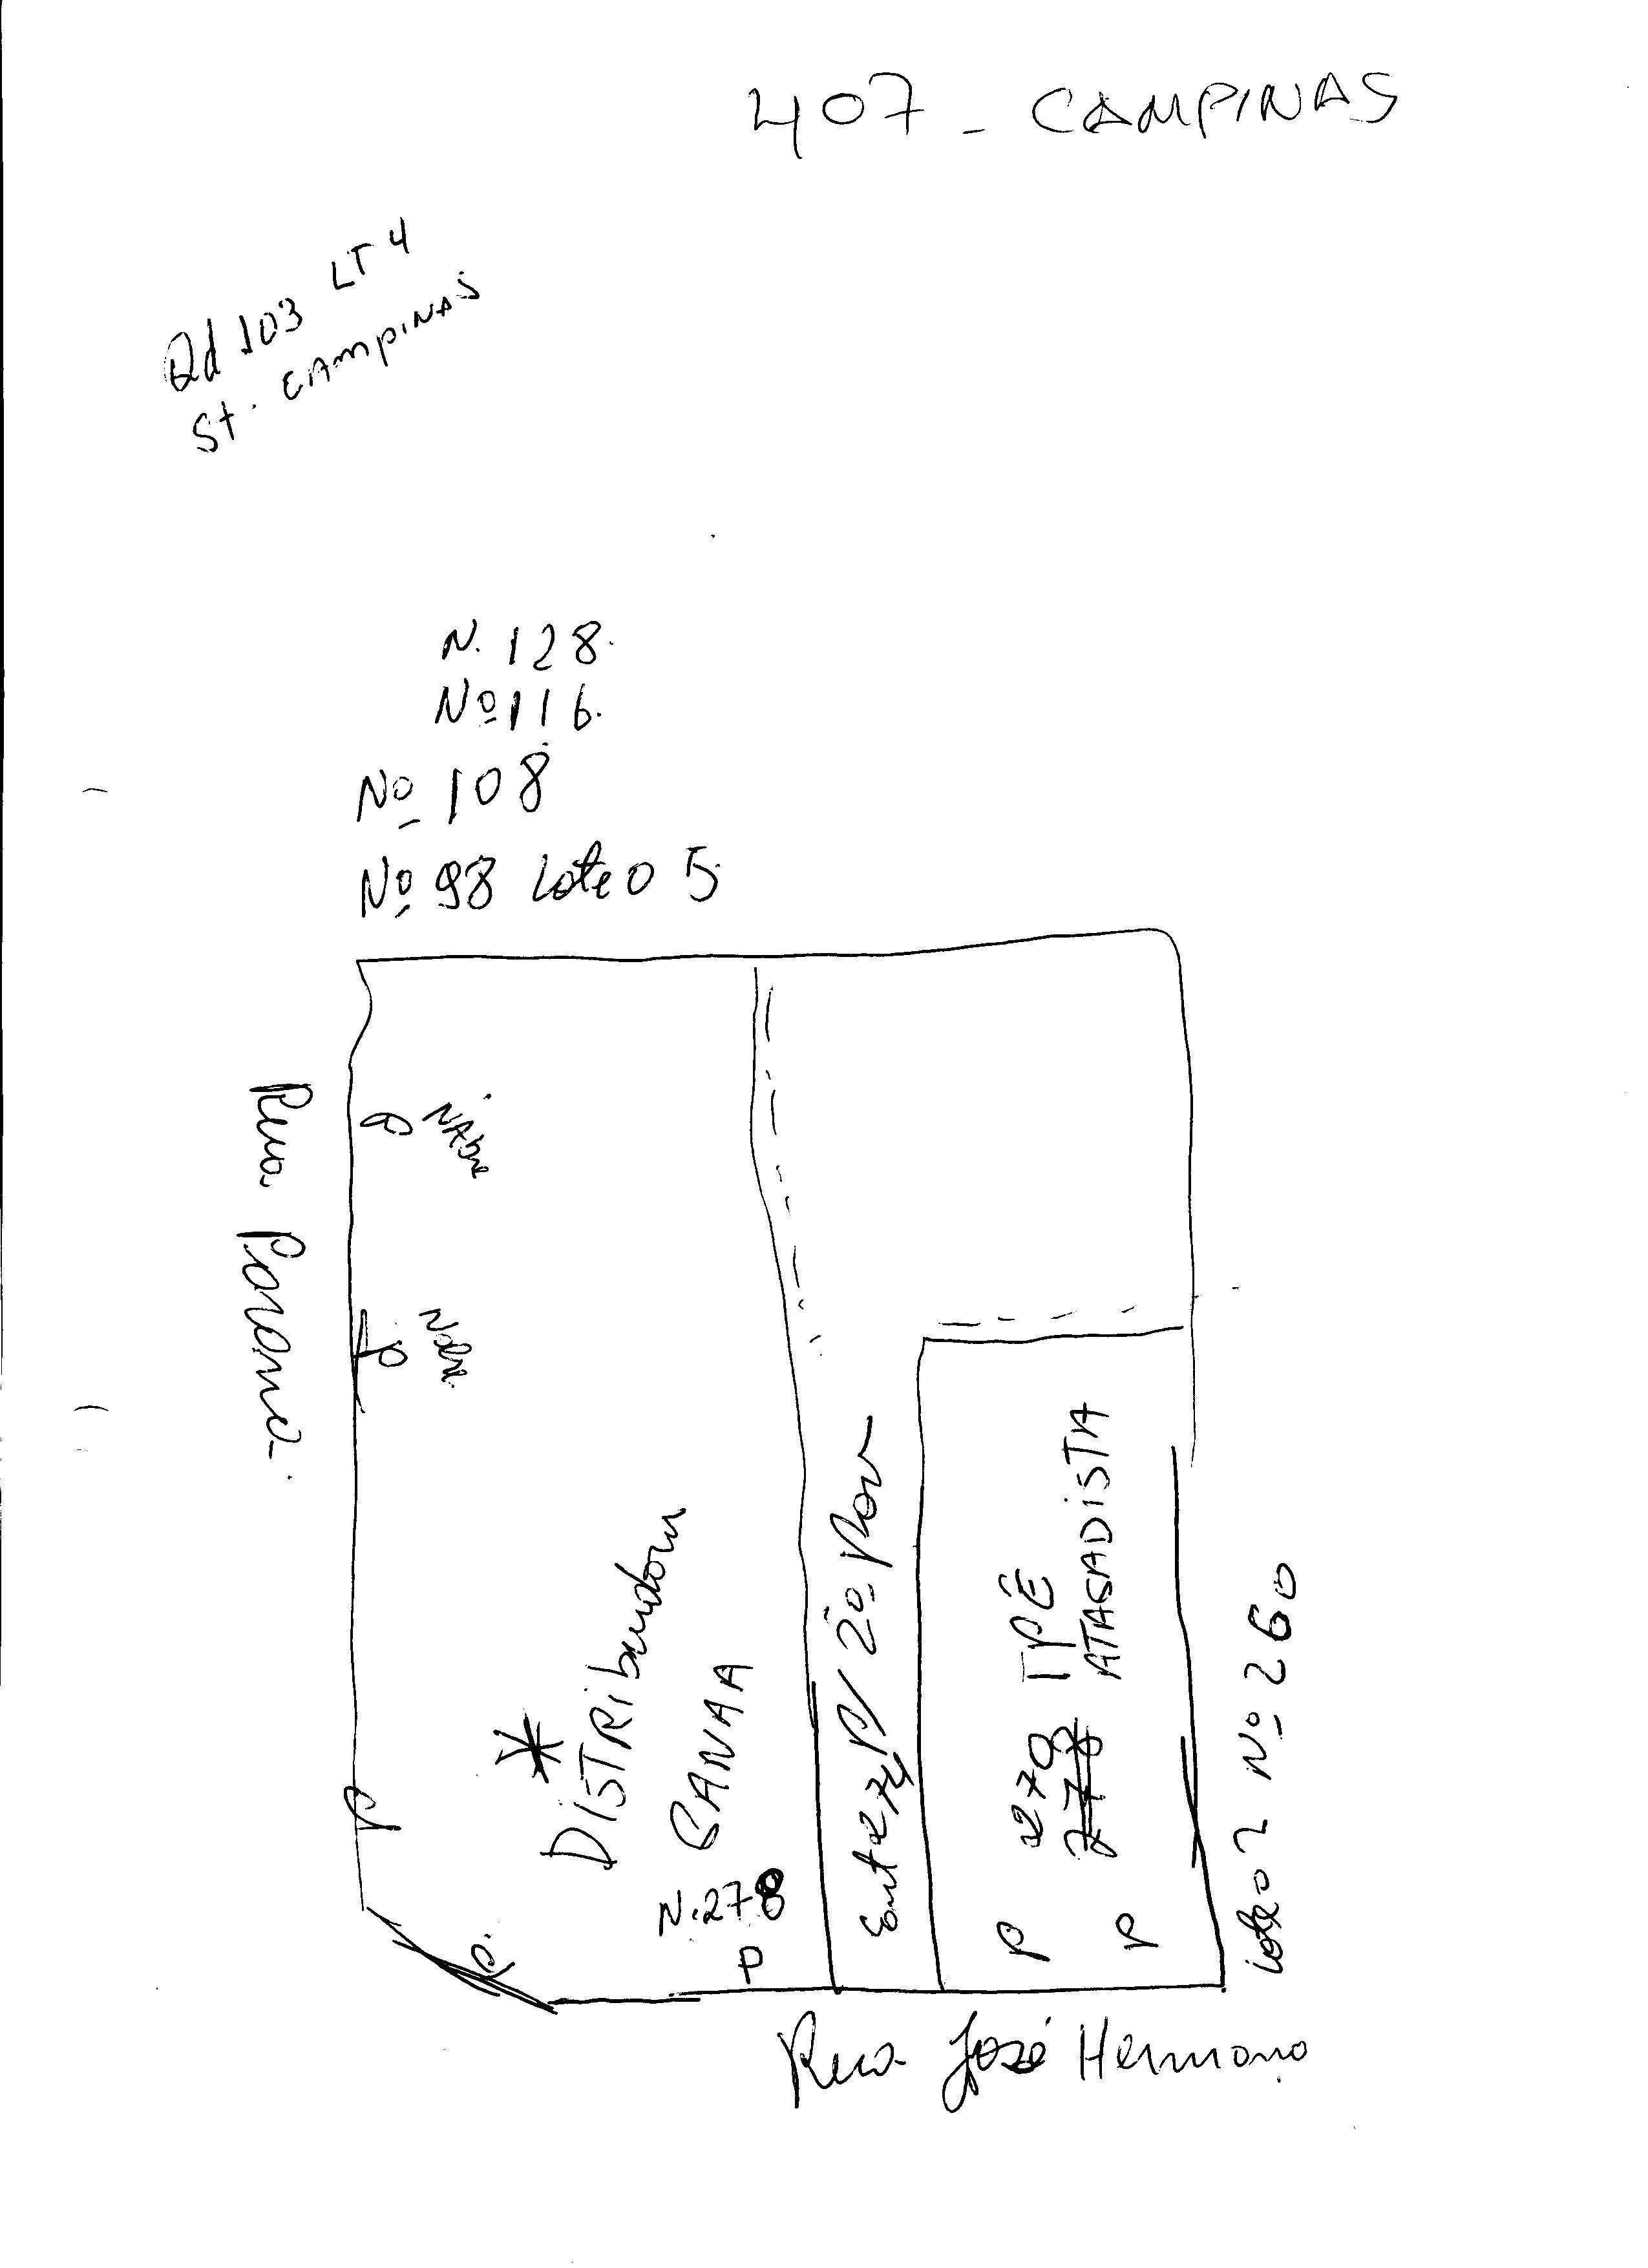 407 - CAMPINAS
Qd 103 LT 4
St. CAMPINAS
N. 128.
Nº 116.
Nº 108
Nº 98 Lote 05
Rua Paraná
P
P
P
P.
* DISTRIBuidora
CANAA
N. 278
P
Ent 274 P/ 2º Pav
270 IPÊ
278 ATACADISTA
P
P
Lote 02 Nº 260
Rua José Hermano